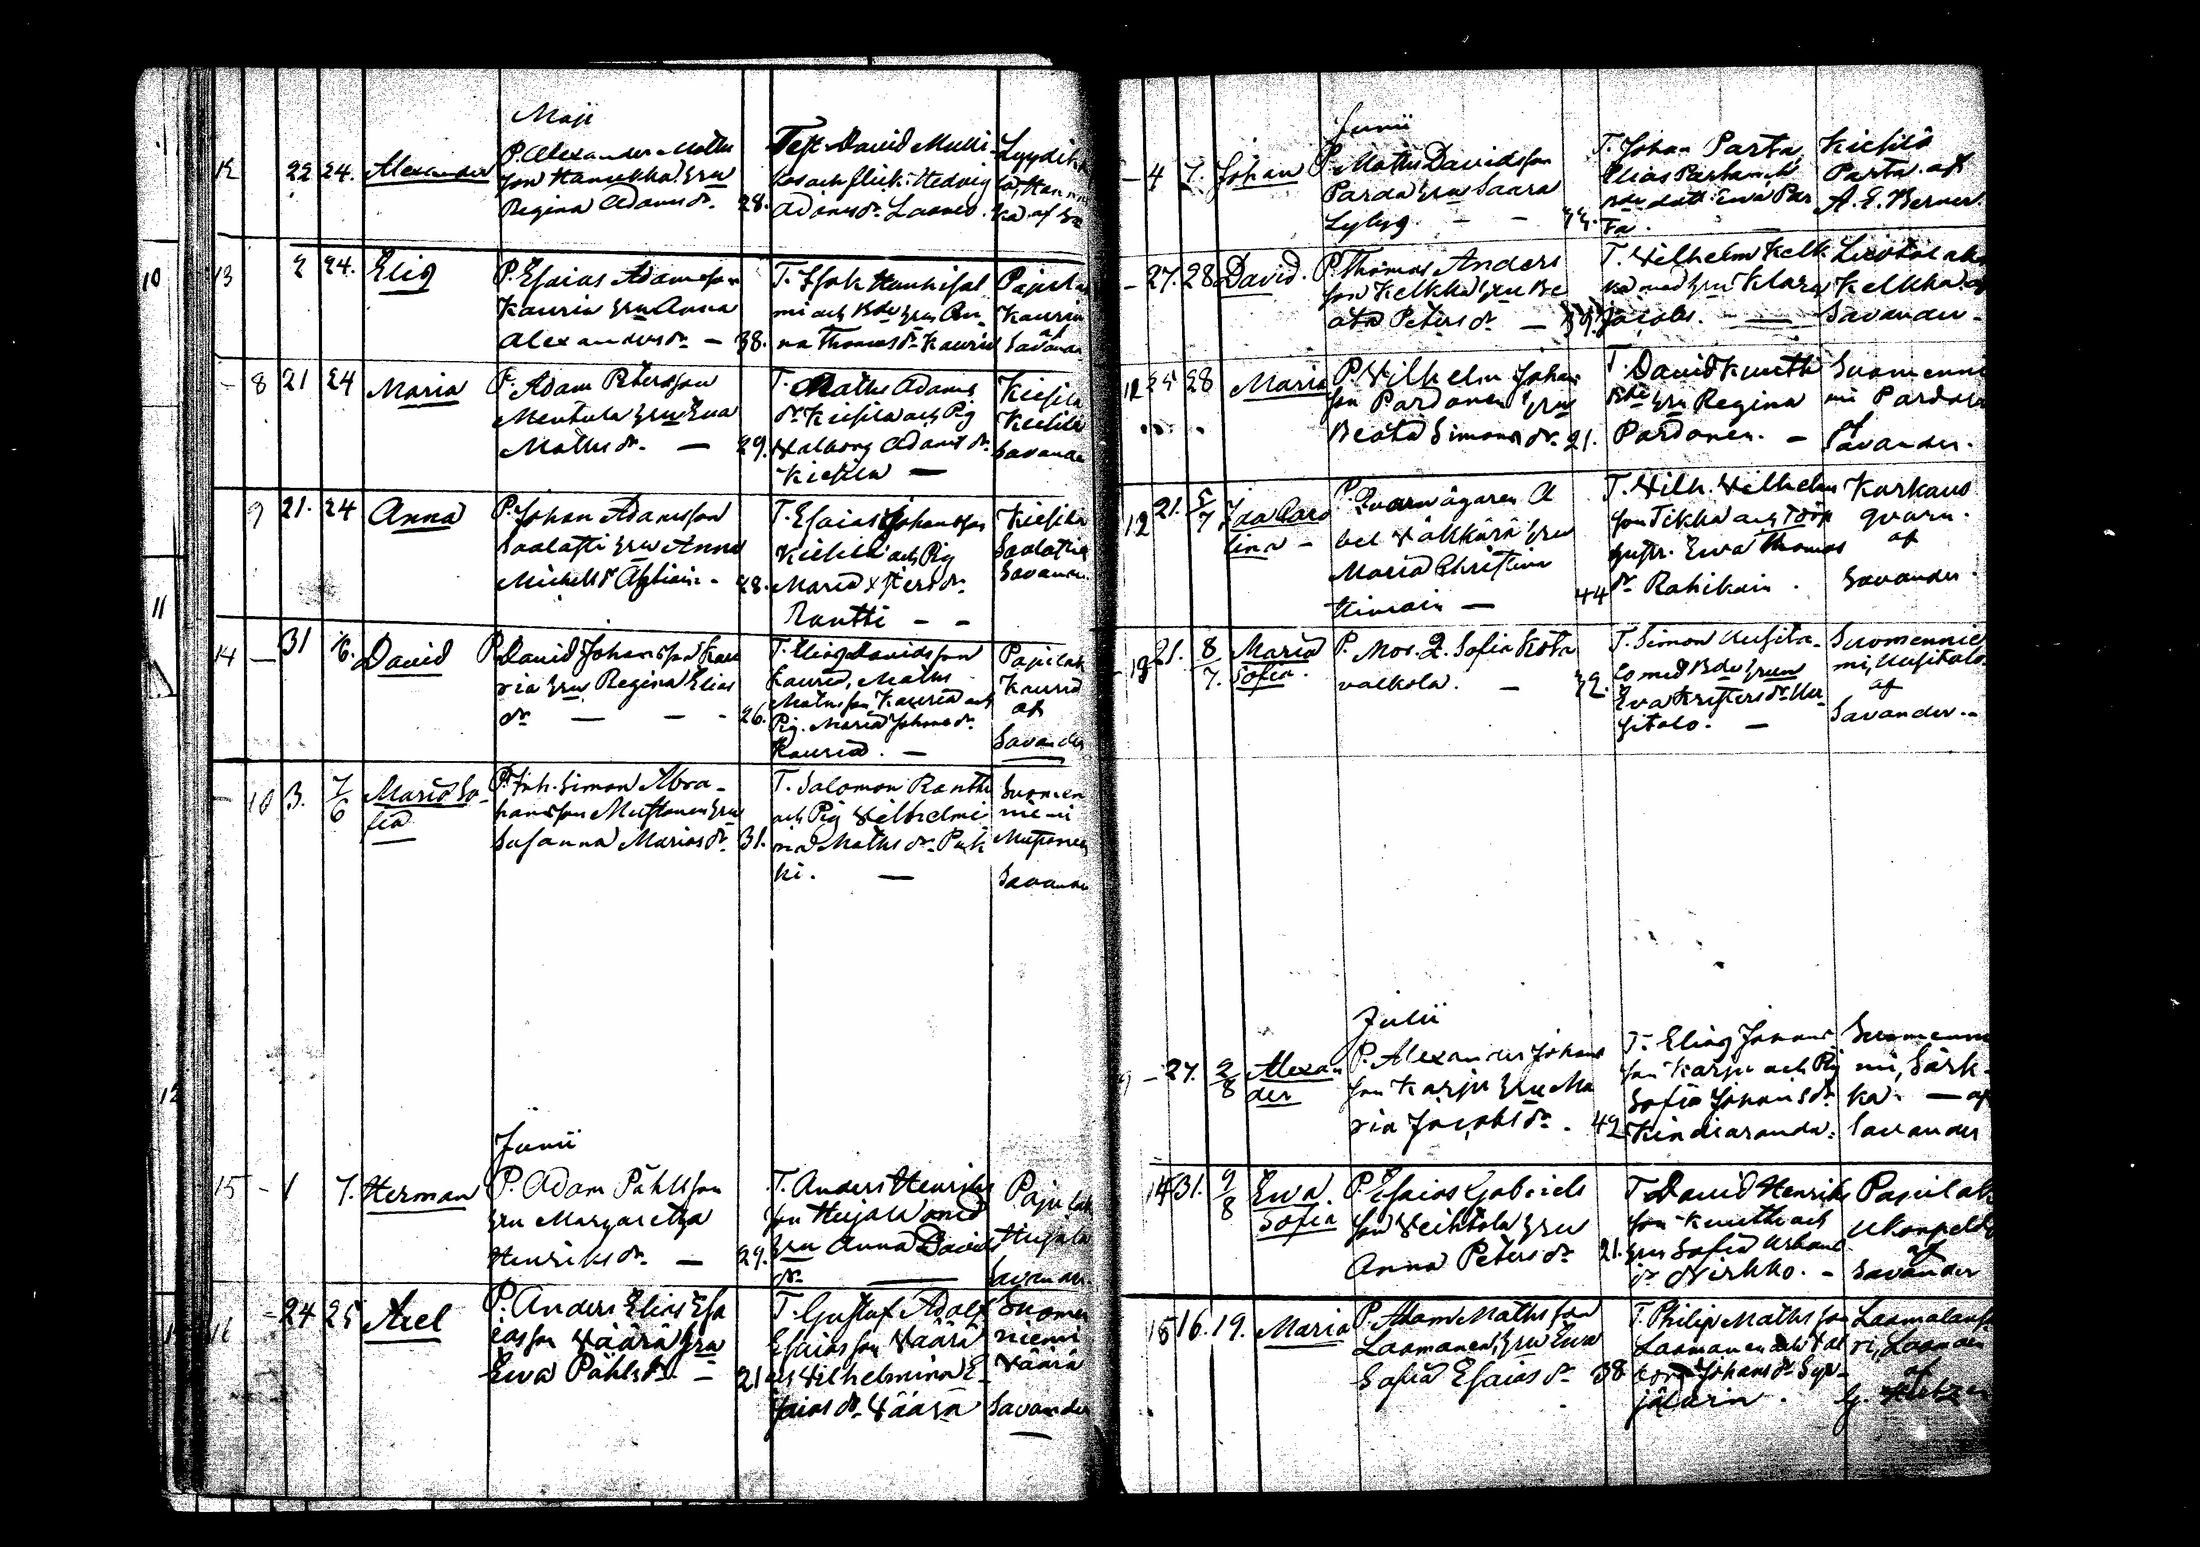 Maji
12 22 24. Alexander P. Alexander Maths
son Hanukka hru
Regina Adamsdr. 28.
Test. David Mulli
kas och flick. Hedvig
Adamsdr. Laanes.
10 13 2 24. Elias P. Esaias Adamsson
Kauria hru Anna
Alexandersdr — 38.
T. Isak Hanhisal
mi och Bde hru An
na Thomasdr. Kauria
Pajula
Kauria
af
Savander
- 8 21 24 Maria P. Adam Petersson
Mentula hru Eva
Mathsdr. — 29.
T. Maths Adams
dr. Kiesilä och Pig
Walborg Adamsdr.
Kiesilä —
Kiesilä
Kiesilä
Savander
9 21. 24 Anna P. Johan Adamsson
Saalasti hru Anna
Michelsdr 28.
T. Esaias Johansson
Kiesilä och Pig
Maria
Rantti - -
Kiesilä
Saalasti
Savander
11
14 — 31 David P. David Johansson Kau
ria hru Regina Elias
dr — — - 26.
T. Elias Davidsson
Kauria, Maths
Mathsson Kauria och
Pig. Maria Johansdr.
Kauria. —
Pajulak
Kauria
af
Savander
- 10 3. 7/6 Maria So-
fia
P. Inh. Simon Abra-
hamsson Mustonen hru
Susanna Mariasdr. 31.
T. Salomon Rantti
och Pig Wilhelmi
na Mathsdr. Puk
ki. —
Suomen
niemi
Mustonen
Savander
12
Junii
15 - 1 7. Herman P. Adam Påhlsson
hru Margaretha
Henriksdr. — 29.
T. Anders Henriks
son Hujala med
hru Anna Davids
dr. —
Pajulak
Hujala
Savander
16 - 24 25 Axel P. Anders Elias Esa
iasson Väärä hru
Eva Påhlsdr. — 21
T. Gustaf Adolf
Esaiasson Väärä
o. Wilhelmina E-
saiasdr. Väärä
Suomen
niemi
Väärä
Savander
Junii
- 4 7. Johan P. Maths Davidsson
Parda hru Saara
- - 33.
T. Johan Parta,
Elias Parta och
Bde dott. Ewa Par
ta.
Kiesilä
Parta. af
A. E. Berner.
- 27. 28 David. P. Thomas Anders
son Kelkka hru Be
ata Petersdr — 39.
T. Wilhelm Kelk
ka med hru Klara
Jacobs. —
Kelkka af
Savander.
12 25 28 Maria P. Wilhelm Johan
son Pardanen hru
Beata Simonsdr. 21.
T. David Knuth
Bde hru Regina
Pardanen. —
Suomenni
mi Pardanen
af
Savander.
12 21. 5/7 Ida Caro
lina -
P. Qvarnägaren A
bel Välkärä hru
Maria Christina
Kinrain — 44
T. Wilh. Wilhelms
son Tikka och Torp
hustr. Ewa Thomas
dr Rahikain.
Karkaus
qvarn.
af
Savander.
- 13 21. 8/7. Maria
Sofia.
P. Mos. 2. Sofia Kota
valkola. — 32.
T. Simon Uusita-
lo med Bde hrun
Eva Kristersdr. Uu
sitalo. —
Suomennie
mi, Uusitalo
af
Savander.-
Julii
- 27. 2/8 Alexan
der
P. Alexander Johans
son Karju hru Ma
ria Jacobsdr. . 42
T. Elias Johans
son Karju och Pig
Sofia Johansdr.
Kindiaranda.
Suomennie
mi, Särk-
ka. — af
Savander
14 31. 9/8 Ewa
Sofia
P. Esaias Gabriels
son Veihtola hru
Anna Petersdr 21.
T. David Henriks
son Knuth och
hru Sofia Urbans
dr Nirkko. -
Pajulak
Ukonpelto
af
Savander
15 16. 19. Maria P. Adam Mathsson
Laamanen, hru Ewa
Sofia Esaiasdr 38
T. Philip Mathsson
Laamanen och Val
borg Johansdr. Syr-
jäläin.
Laamalansa
ri, Laaman
af